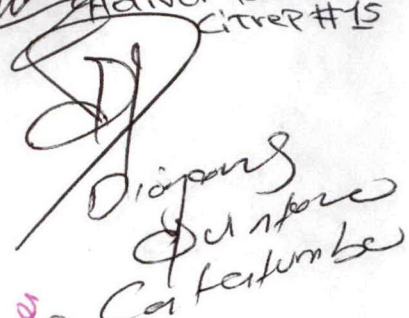 CITREP #15
Diógenes
Quintero
Catatumbo